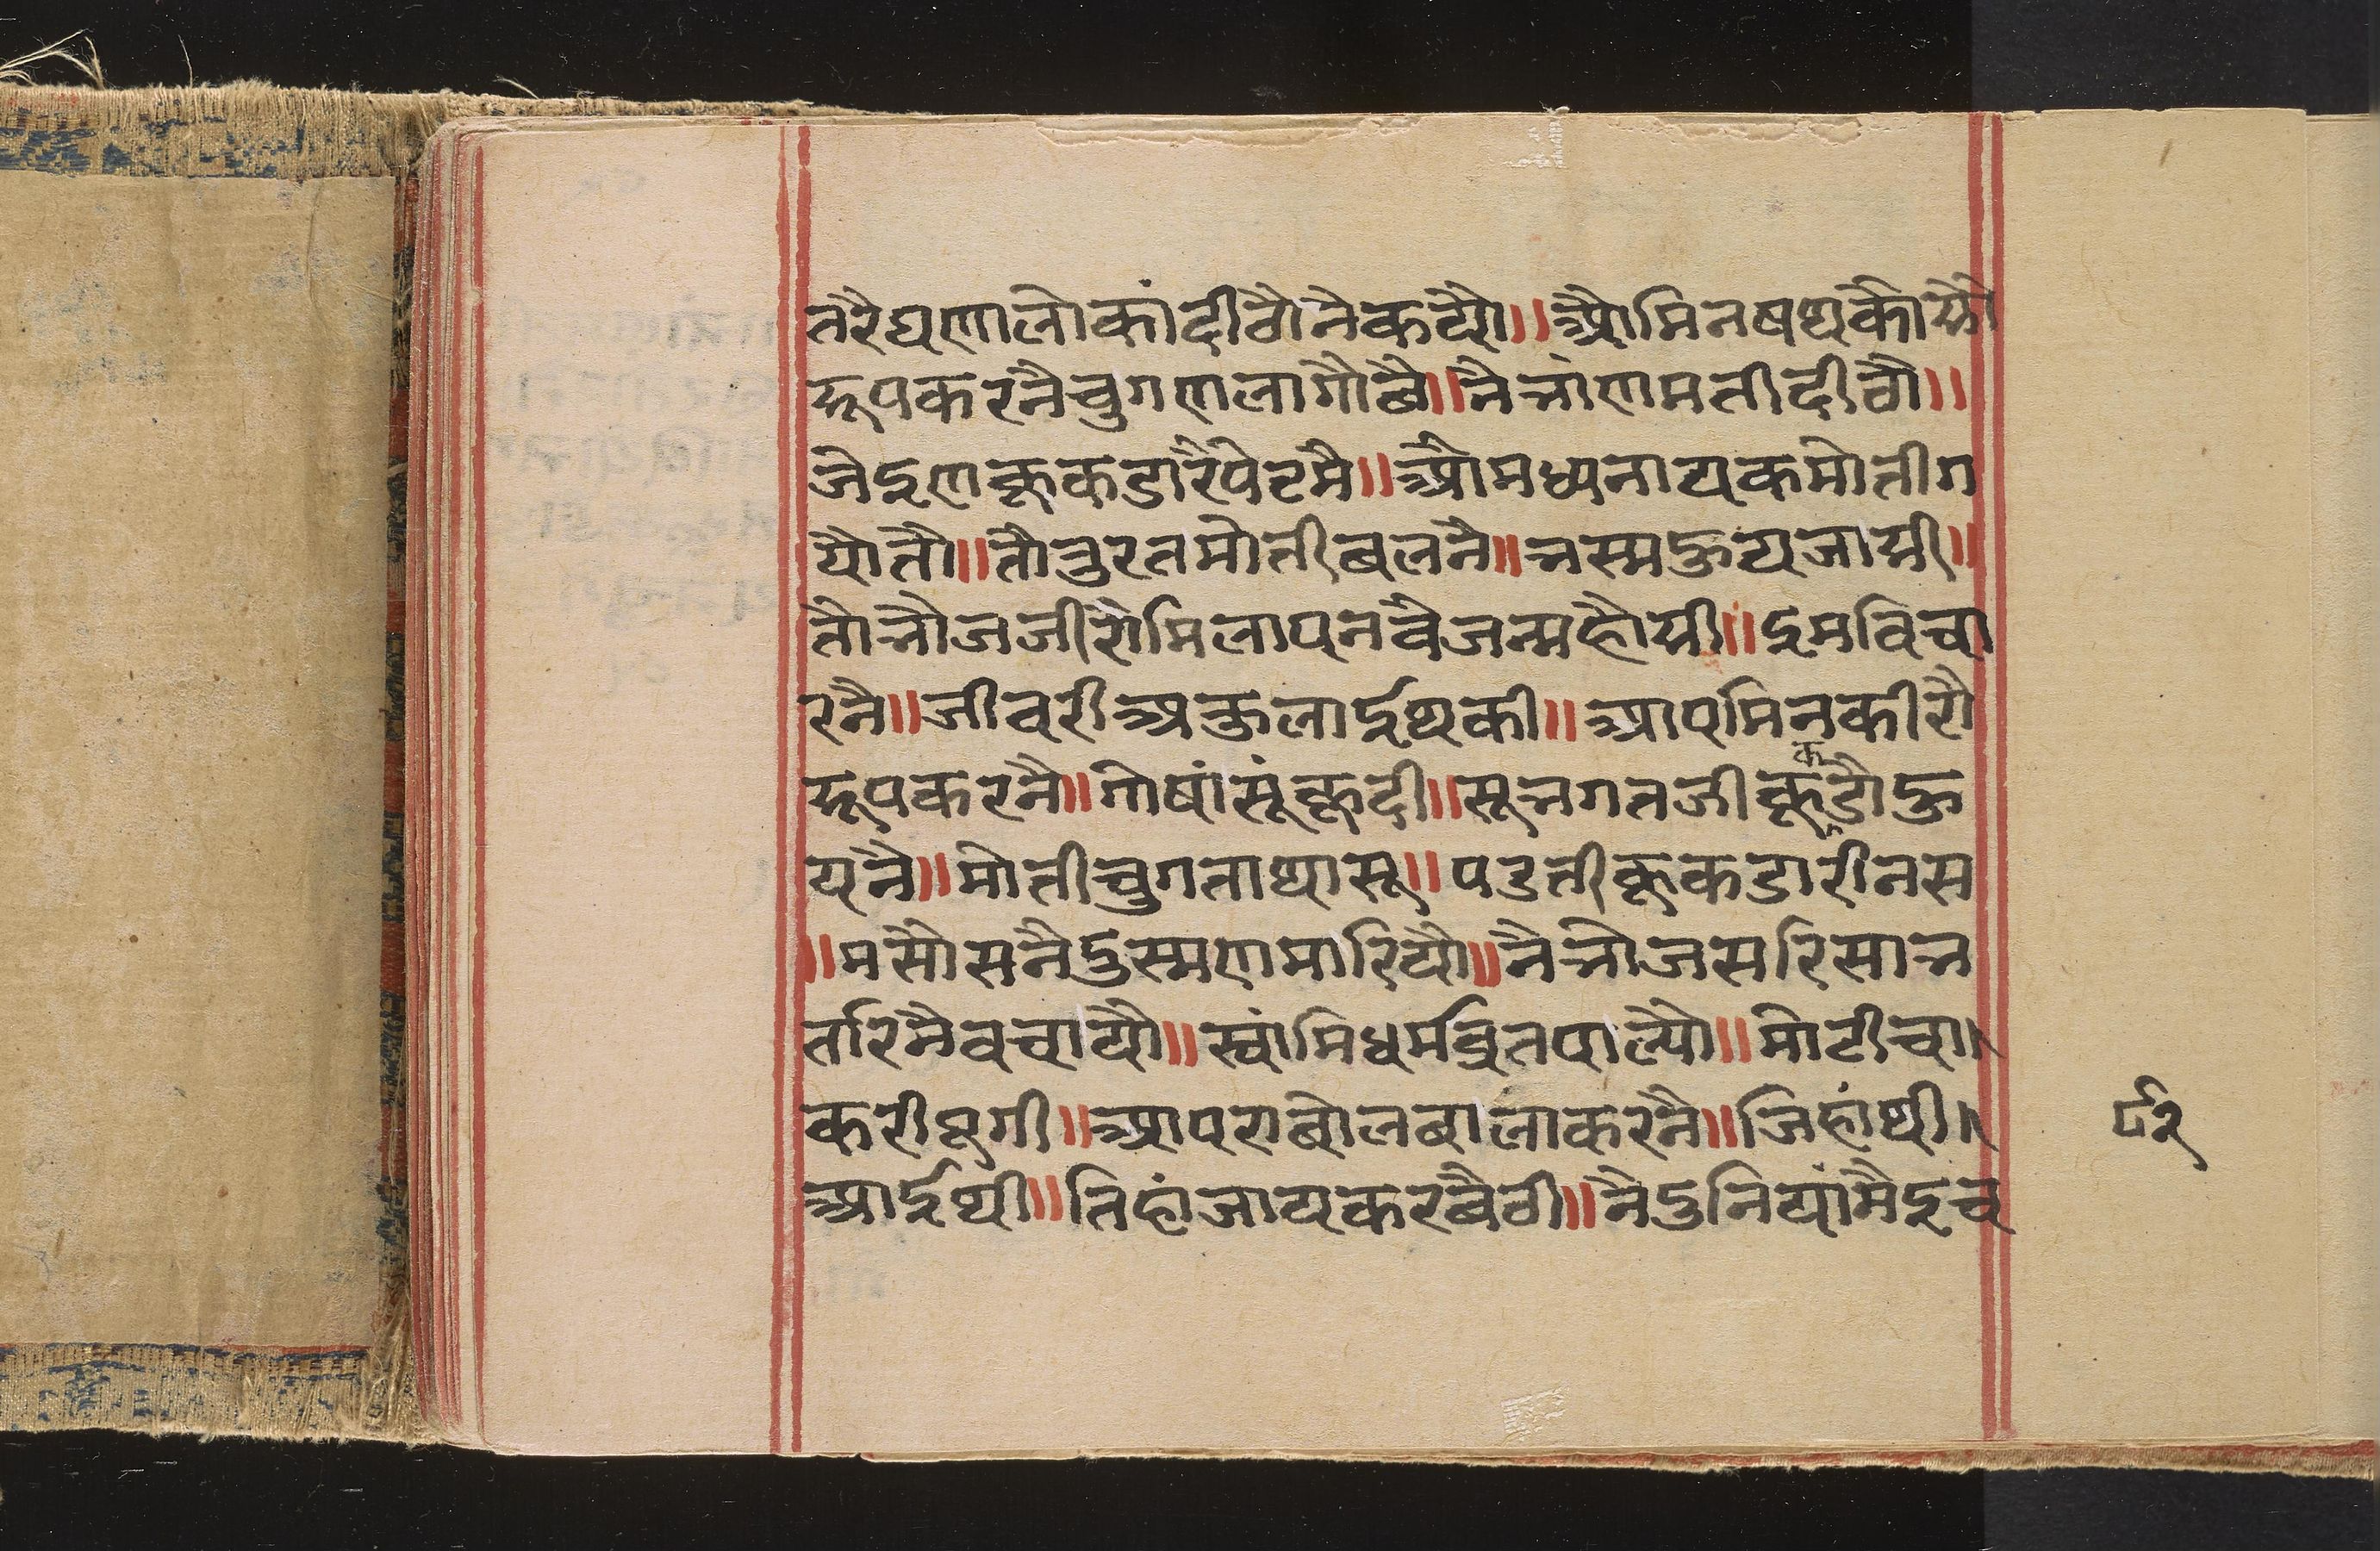 तरैघणालोकांदीठौनैकह्यौ॥ औमिनषथकोय्हौ
रूपकरनैचुगणलागौछै॥ नैत्रांणमतीदीठौ॥
जेइणकूकडारैपेटमै॥ औमध्यनायकमोतीग
यौतौ॥ तौतुरतमोतीबलनै॥ भस्मऊयजासी॥
तौभोजजीरोमिलापनवैजन्महौसी॥ इमविचा
रनै॥ जीवरीअकलाईथकी॥ आपमिनकीरौ
रूपकरनै॥ गोषांसूंकूदी॥ सूभगतजीकूकडौऊ
यनै॥ मोतीचुगताथासू॥ पडतीकूकडारीनस
॥ मसौसनैदुस्मणमारियौ॥ नैभोजसरिसाभ
रतरिनैवचायौ॥ स्वांमिधर्मव्रतपाल्यौ॥ मोटीचा।
करीपूगी॥ आपराबोलबालाकरनै॥ जिहांथी।
आईथी॥ तिहांजायकरबैठी॥ नैदुनियांमैइच
८२